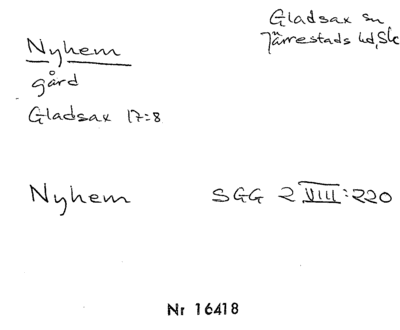 Nyhem
gård
Gladsax 17:8
Gladsax sn
Järrestads hd, Sk
Nyhem SGG 2 VIII:220
Nr 16418